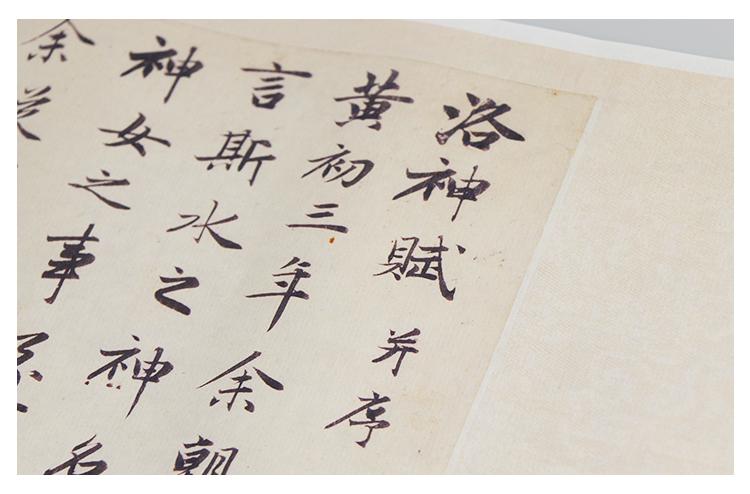 洛神賦 并序
黄初三年余朝
言斯水之神名
神女之事
余